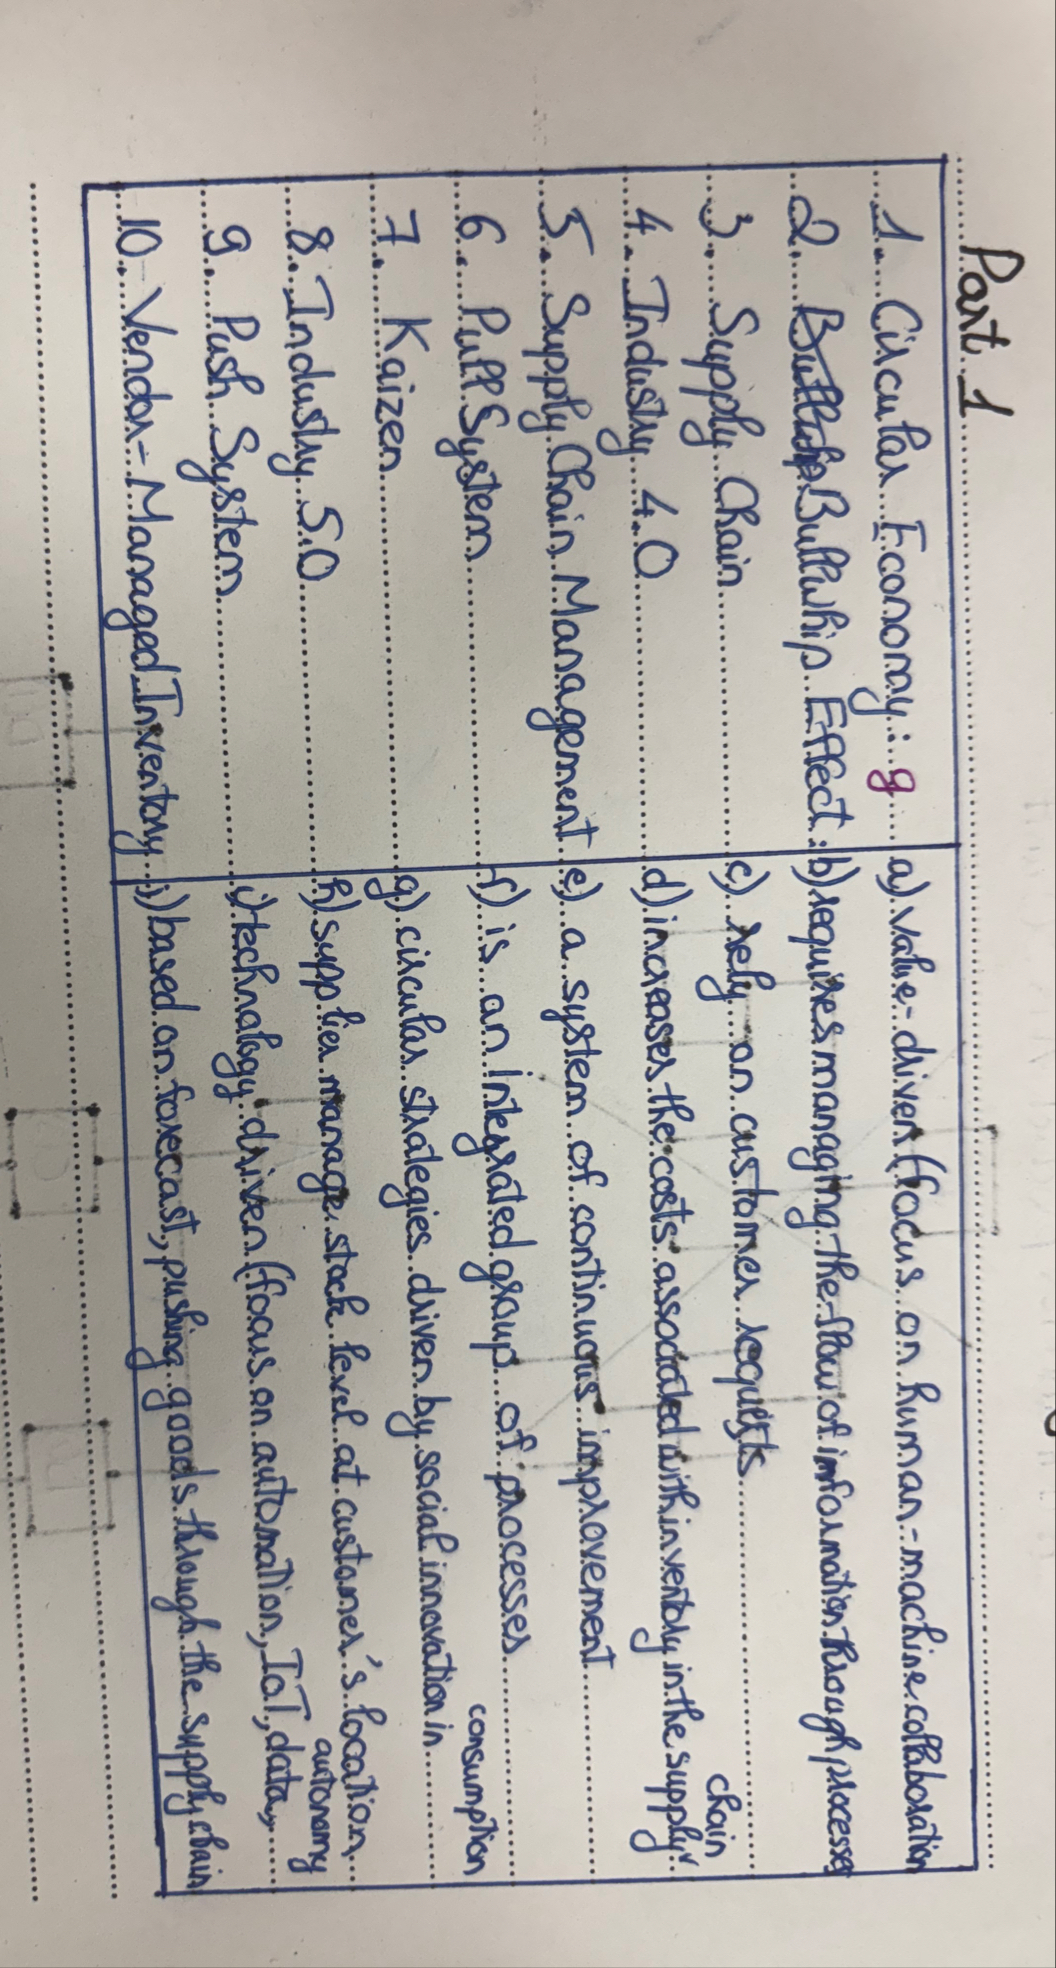 Part 1
1. Circular Economy : g a) value-driven (focus on human-machine collaboration
2. Bullwhip Effect : b) requires managing the flow of information through processes
3. Supply Chain c) rely on customer requests
4. Industry 4.0 d) increases the costs associated with inventory in the supply chain
5. Supply Chain Management e) a system of continuous improvement
6. Pull System f) is an integrated group of processes
7. Kaizen g) circular strategies driven by social innovation in consumption
8. Industry 5.0 h) supplier manage stock level at customer's location
9. Push System i) technology driven (focus on automation, IoT, data, autonomy
10. Vendor-Managed Inventory j) based on forecast, pushing goods through the supply chain